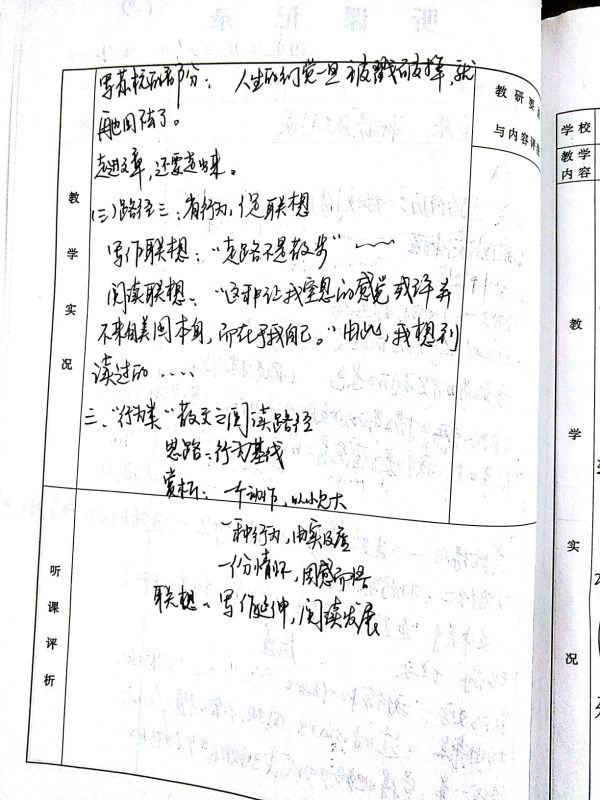 写苏杭的部分：人生的幻觉一旦被戳破或支撑，就
再也回不去了。
走进文章，还要走出来。
(三)路径三：有行为，促联想
写作联想：“走路不是散步”……
阅读联想：“这种让我窒息的感觉或许并
不来自美国本身，而在于我自己。”由此，我想到
读过的……
三、“行为类”散文之阅读路径
思路：行为基线
赏析：一个动作，以小见大
一种行为，由实及虚
一份情怀，因感而悟
联想：写作延伸，阅读发展
教学实况
听课评析
教研要
与内容评
学校
教学
内容
教学实况